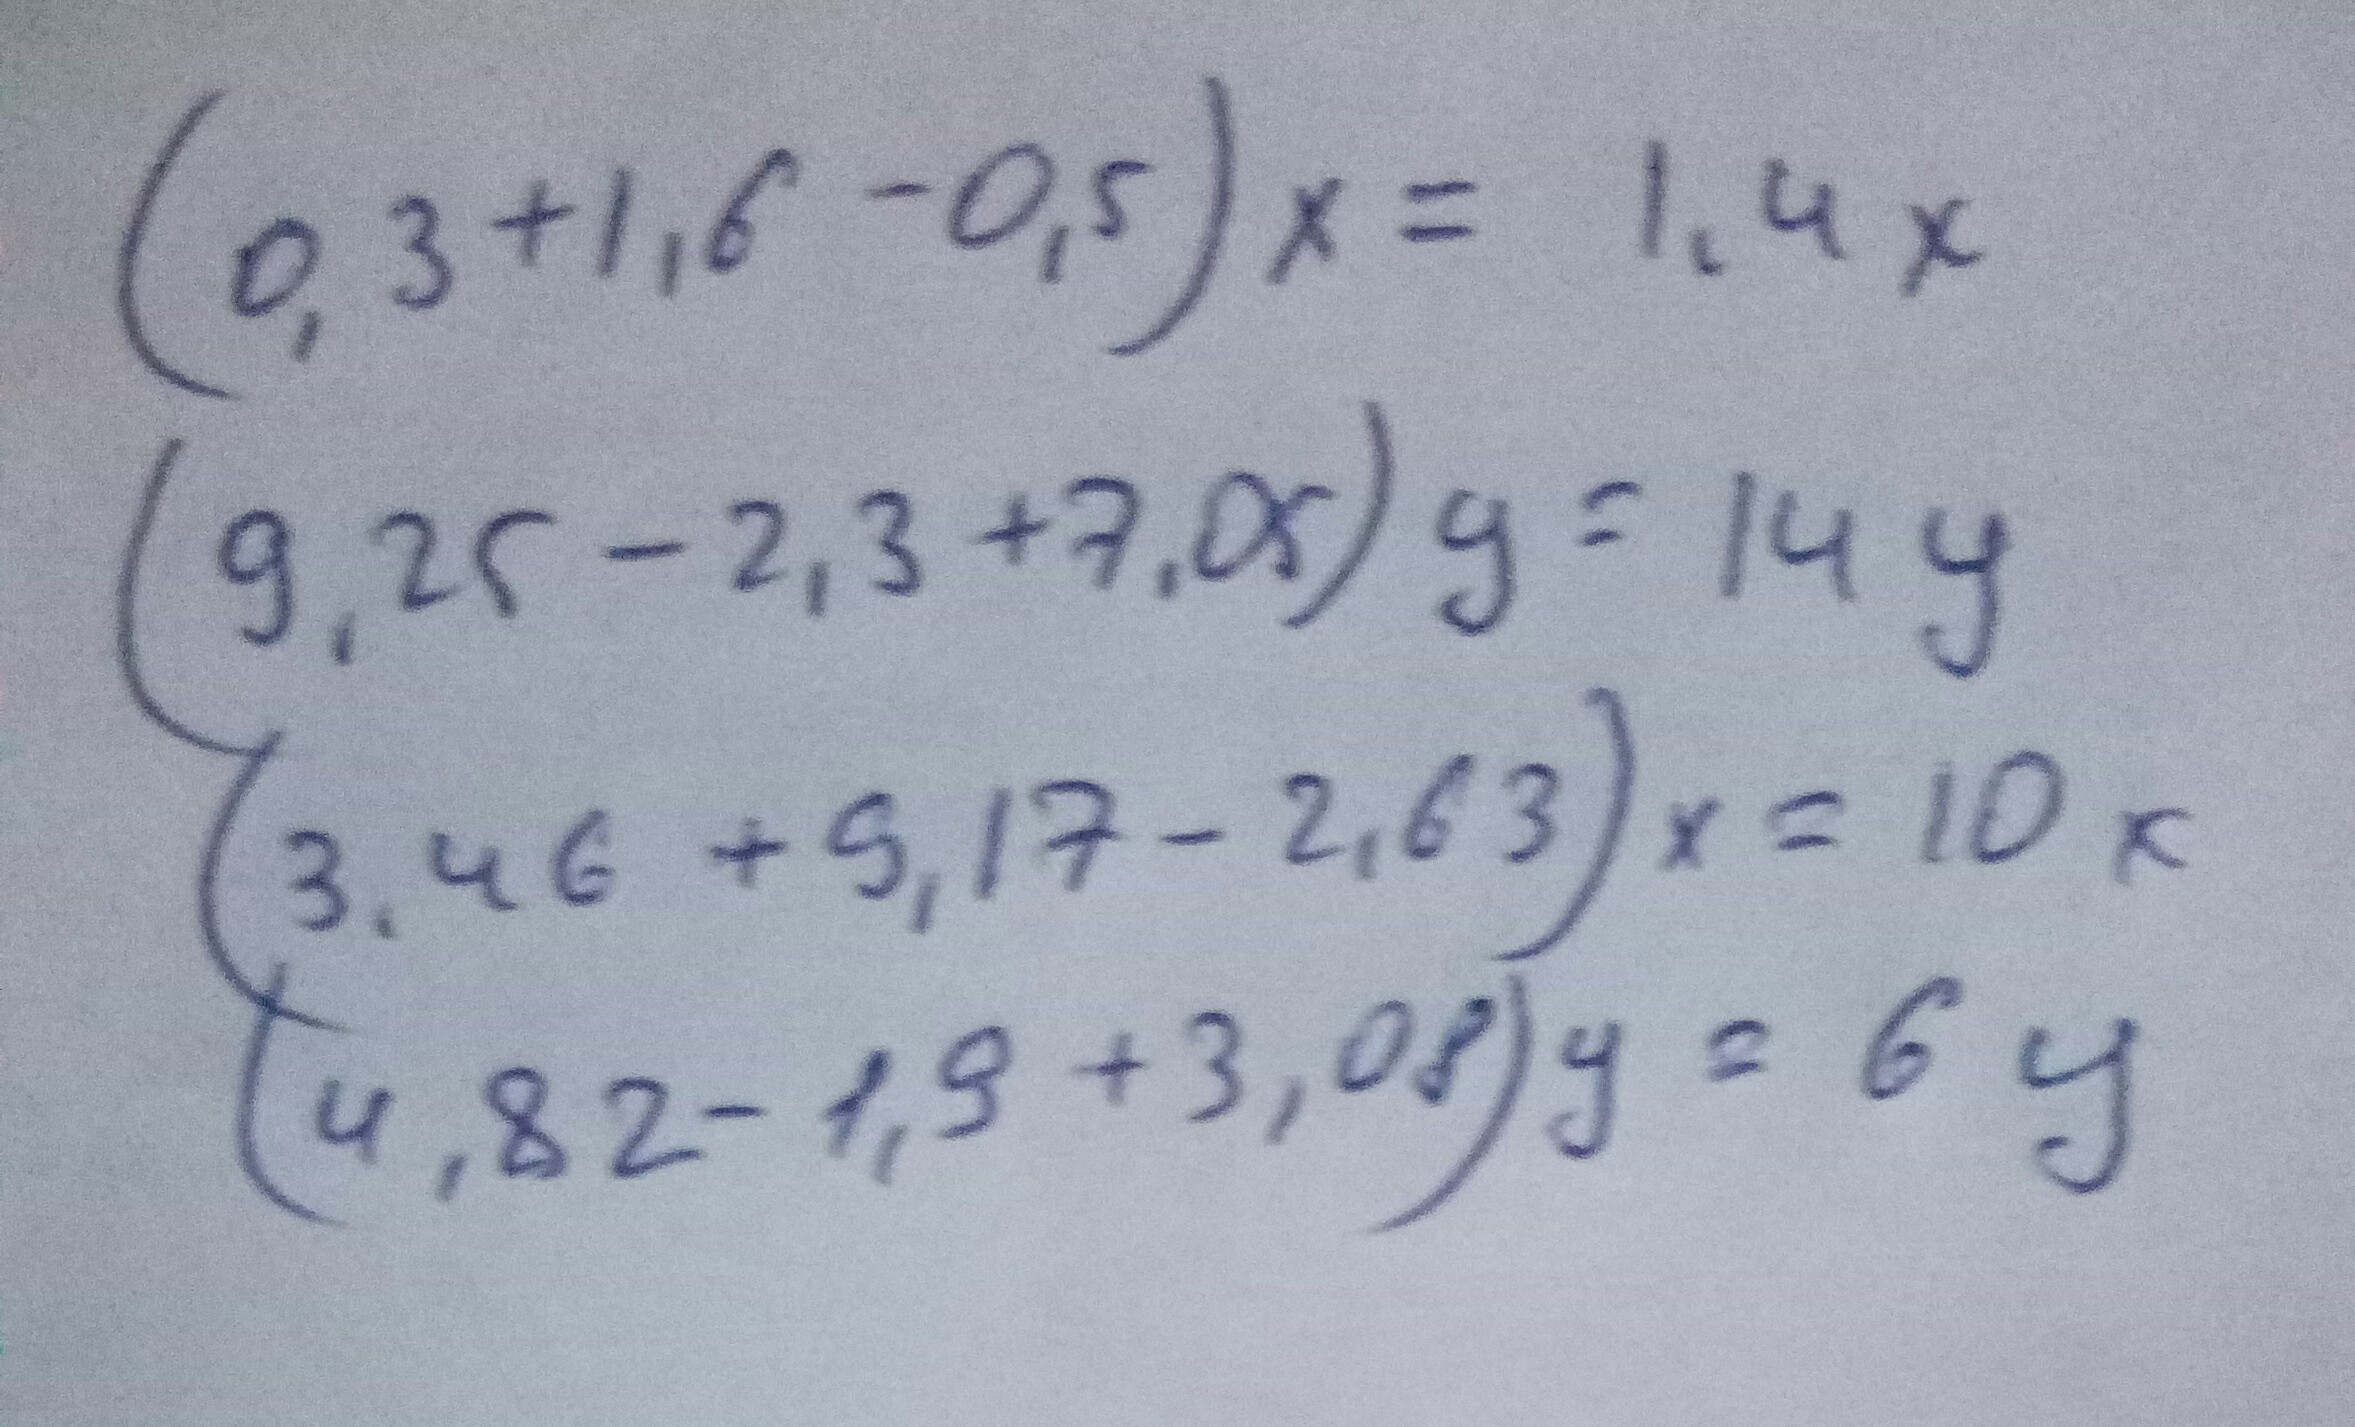 (0,3+1,6-0,5)x= 1,4x
(9,25-2,3+7,05)y=14y
(3,46+9,17-2,63)x=10x
(4,82-1,9+3,08)y=6y